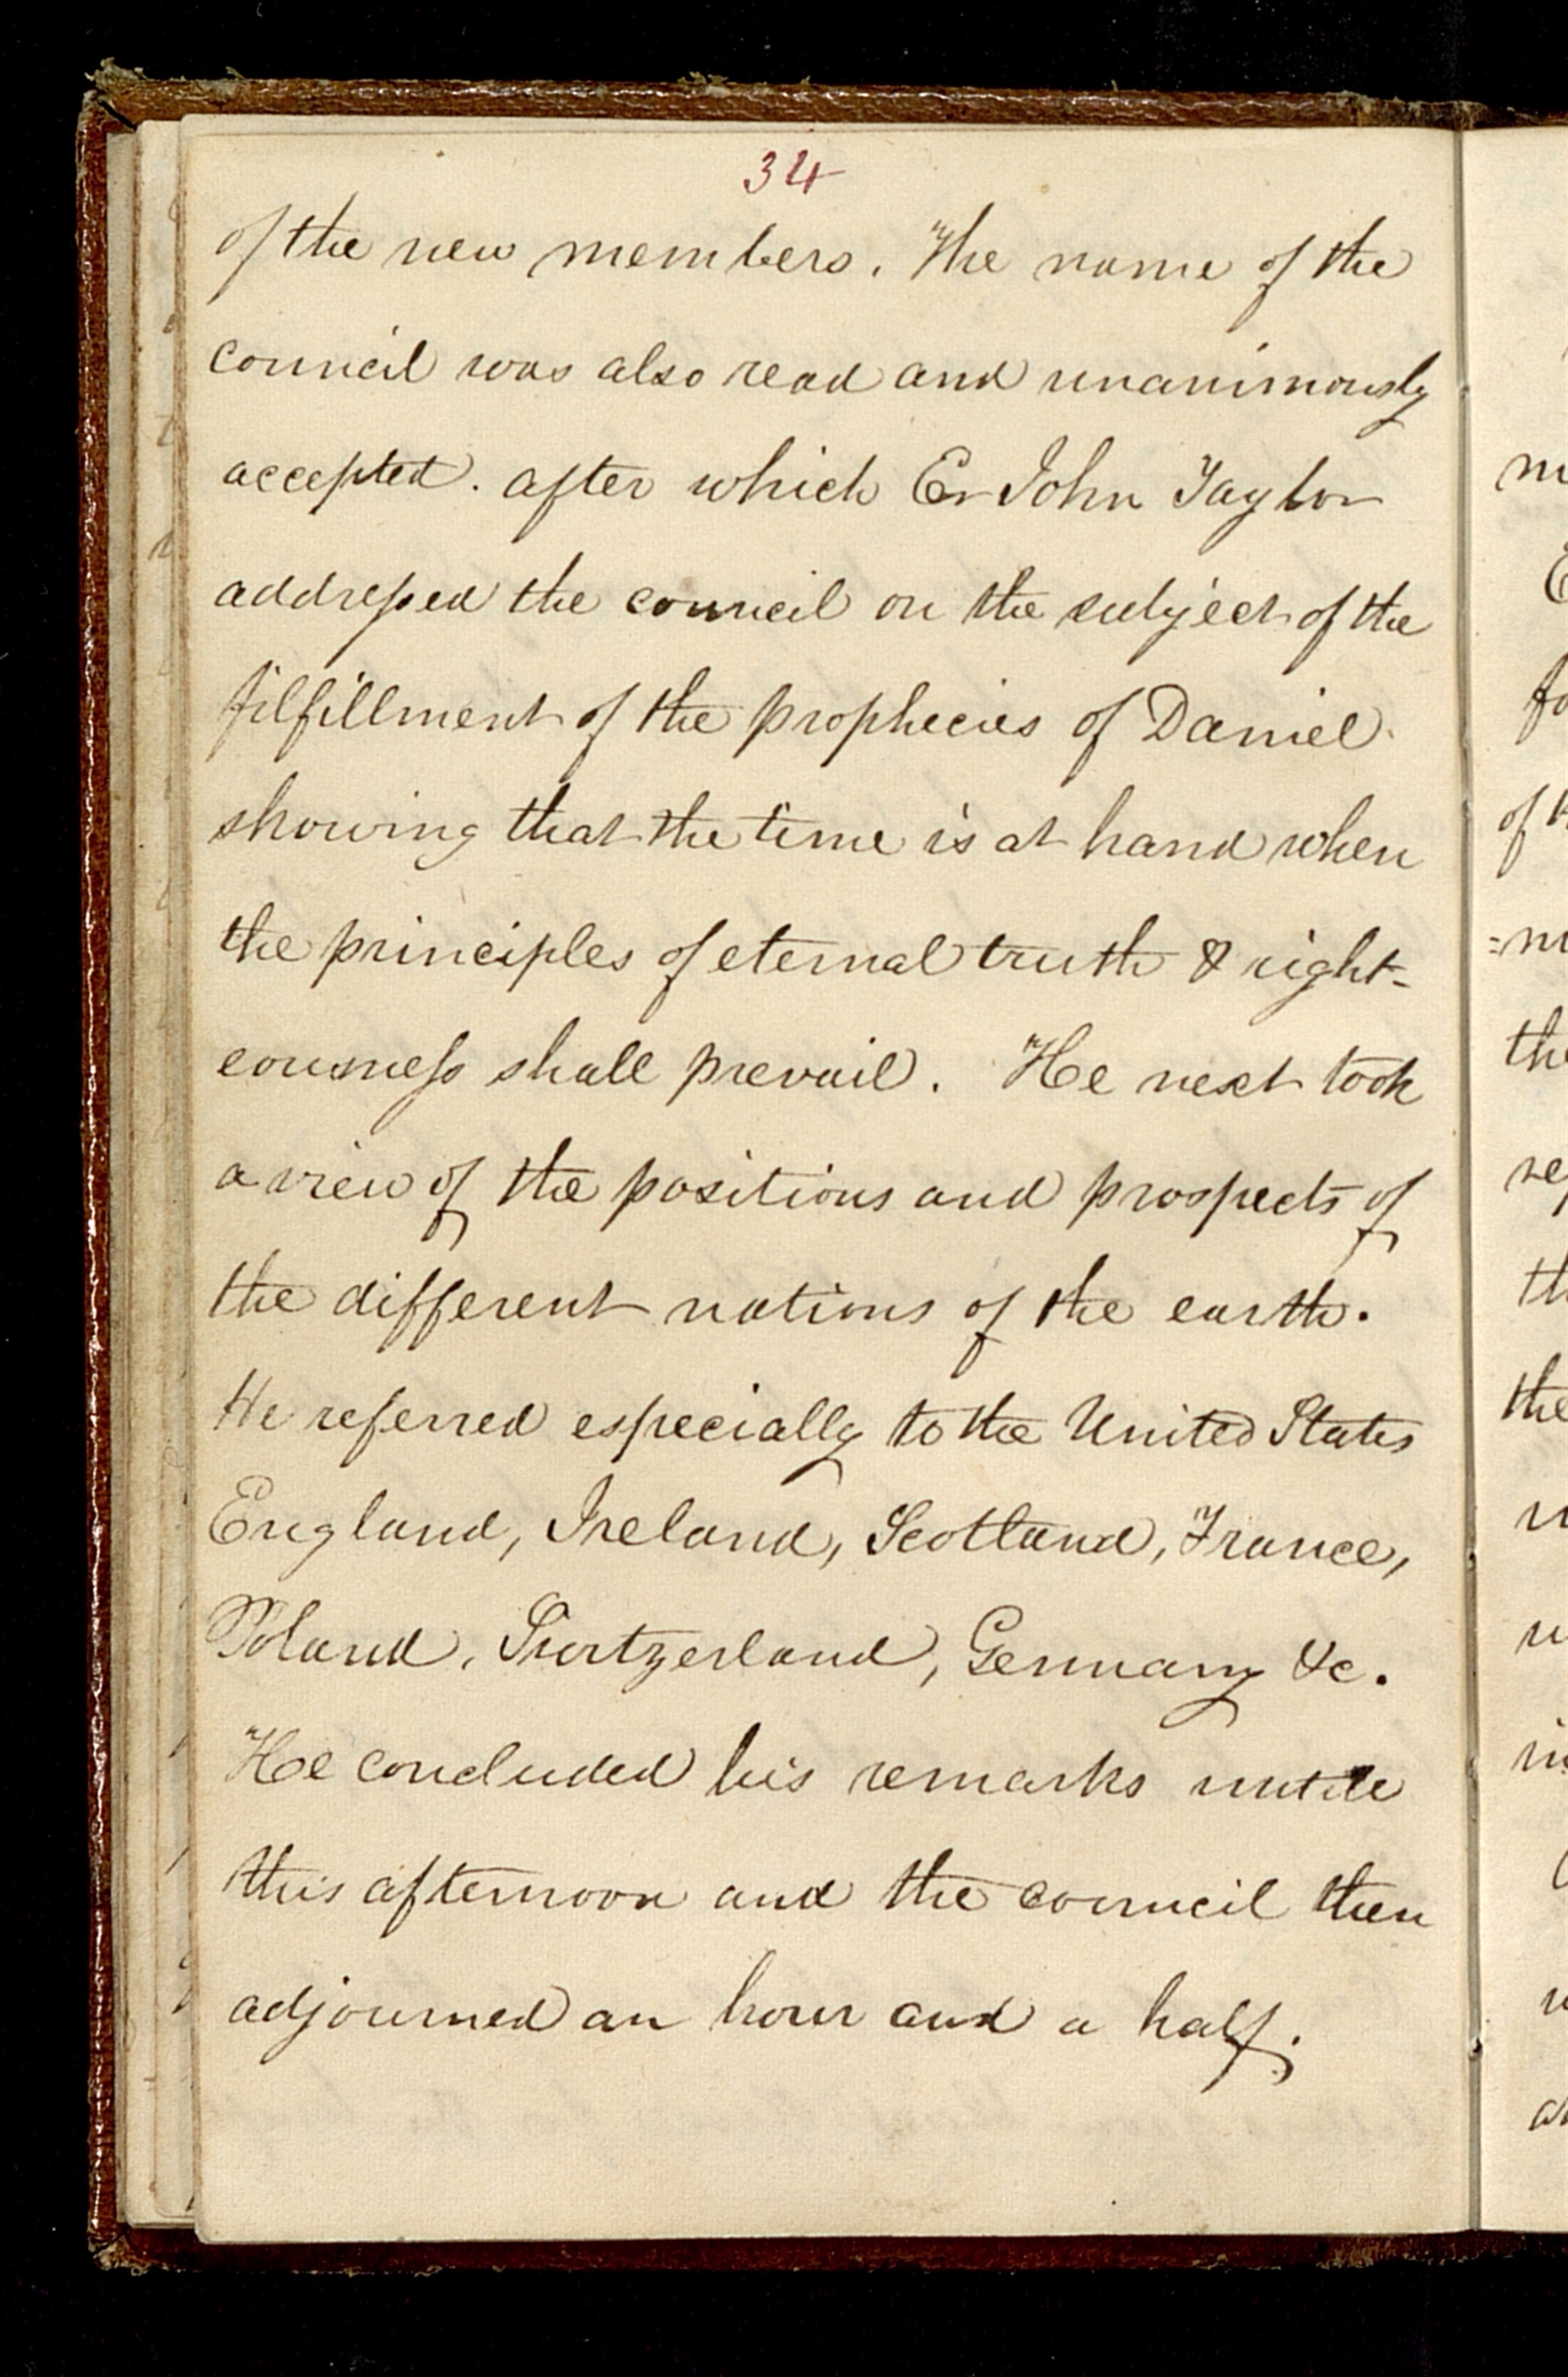 34
of the new members. The name of the
council was also read and unanimously
accepted. after which Er John Taylor
addressed the council on the subject of the
filfillment of the prophecies of Daniel.
showing that the time is at hand when
the principles of eternal truth & right-
eousness shall prevail. He next took
a view of the positions and prospects of
the different nations of the earth.
He referred especially to the United States
England, Ireland, Scotland, France,
Poland, Swrtzerland, Germany &c.
He concluded his remarks untill
this afternoon and the council then
adjourned an hour and a half.
m
E
fo
of t
=m
the
re
th
the